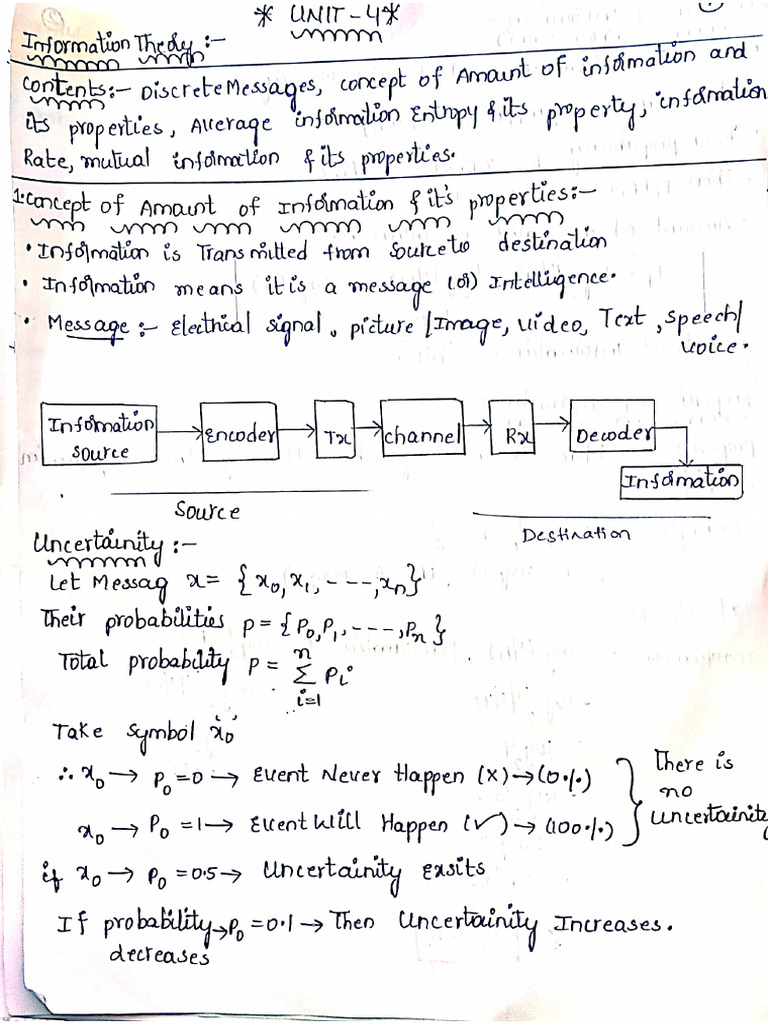 * UNIT-4*
Information Theory:-
Contents:- Discrete Messages, concept of Amount of information and
its properties, Average information Entropy & its property, information
Rate, mutual information & its properties.
1. Concept of Amount of Information & it's properties:-
• Information is Transmitted from source to destination
• Information means it is a message (or) Intelligence.
• Message :- Electrical signal, picture/Image, video, Text, speech/
voice.
Information source → Encoder → Tx → channel → Rx → Decoder
Information
Source
Destination
Uncertainity :-
Let Messag x = {x₀, x₁, ----, xₙ}
Their probabilities p = {P₀, P₁, ----, Pₙ}
Total probability p = n Σ i=1 Pi
Take symbol 'x₀'
∴ x₀ → P₀ = 0 → Event Never Happen (X) → (0%)
x₀ → P₀ = 1 → Event Will Happen (✓) → (100%)
There is
no
Uncertainity
if x₀ → P₀ = 0.5 → Uncertainity Exsits
If probability → P₀ = 0.1 → Then Uncertainity Increases.
decreases